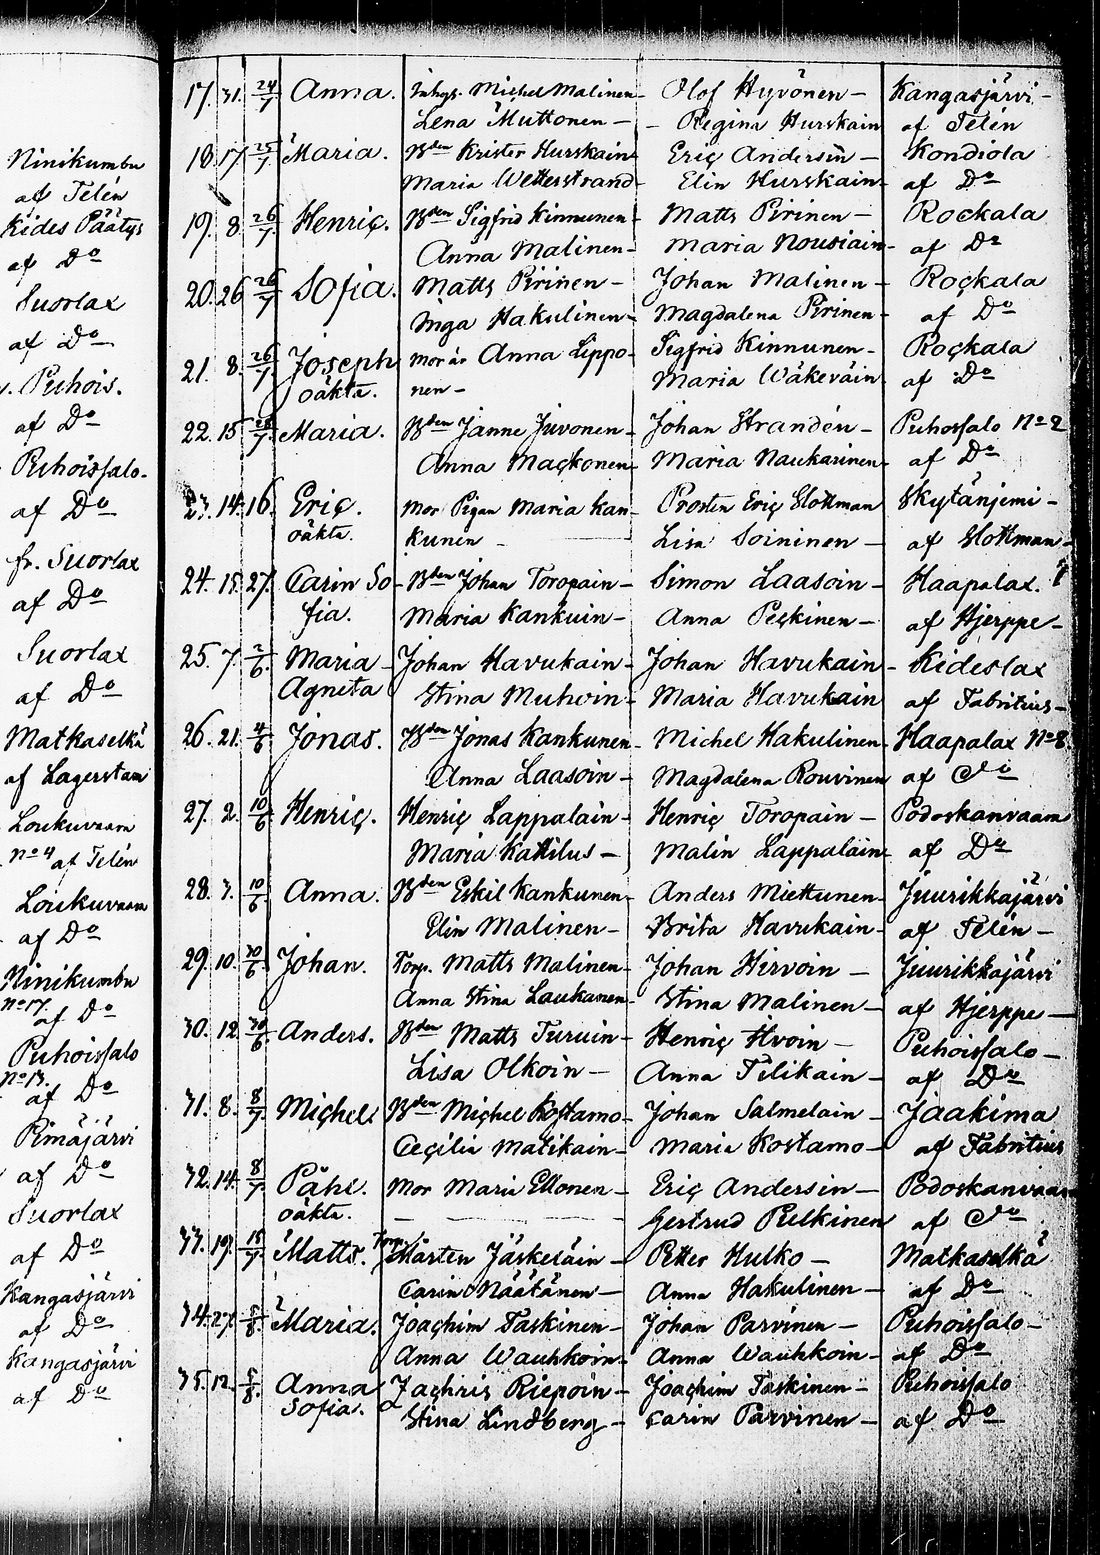 Ninikumbu
af Telén
Kides Päätys
af Do
Suorlax
af Do
Puhois.
af Do
Puhoissalo.
af Do
fr. Suorlax
af Do
Suorlax
af Do
Matkaselkä
af Lagerstam
Loukuvaara
No 4 af Telén
Loukuvaara
af Do
Ninikumbu
No 17. af Do
Puhoissalo
No 13. af Do
Rimäjärvi
af Do
Suorlax
af Do
Kangasjärvi
af Do
Kangasjärvi
af Do
17. 31. 24/7 Anna. Inhys. Michel Malinen- Olof Hyvönen- Kangasjärvi-
Lena Muttonen- Regina Hurskain af Telén
18. 17 25/7 Maria. Bden Krister Hurskain- Eric Andersin- Kondiola
Maria Wetterstrand- Elin Hurskain- af Do
19. 8. 26/7 Henric. Bden Sigfrid Kinnunen- Matts Pirinen- Rockala
Anna Malinen- Maria Nousiain- af Do
20. 26 26/7 Sofia. Matts Pirinen- Johan Malinen- Rockala
Inga Hakulinen- Magdalena Pirinen- af Do
21. 8. 26/7 Joseph moräs Anna Lippo- Sigfrid Kinnunen- Rockala
oäkta. nen- Maria Wäkeväin- af Do
22. 15 28/7 Maria. Bden Janne Juvonen- Johan Strandén- Puhossalo No 2
Anna Mackonen- Maria Naukarinen- af Do
23. 14. 16. Eric. Mor Pigan Maria Kan- Prosten Eric Slottman Skytänjemi-
oäkta. kunen- Lisa Soininen- af Slottman-
24. 15. 27. Carin So- Bden Johan Toropain- Simon Laasoin- Haapalax. 7
fia. Maria Kankuin- Anna Peckinen- af Hjerppe-
25. 7. 2/6 Maria Johan Havukain- Johan Havukain- Kideslax
Agneta Stina Muhoin- Maria Havukain af Fabritius-
26. 21. 4/6 Jonas. Bden Jonas Kankunen- Michel Hakulinen- Haapalax No 8.
Anna Laasoin- Magdalena Rouvinen af Do
27. 2. 10/6 Henric. Henric Lappalain- Henric Toropain- Podoskanvaara
Maria Kattilus- Malin Lappalain- af Do
28. 3. 10/6 Anna. Bden Eskil Kankunen- Anders Miettunen- Juurikkajärvi
Elin Malinen- Brita Havukain- af Telén-
29. 10. 30/6 Johan. Torp. Matts Malinen- Johan Hirvoin- Juurikkajärvi
Anna Stina Laukanen- Stina Malinen- af Hjerppe-
30. 12. 30/6 Anders. Bden Matts Turuin- Henric Hvoin- Puhoissalo-
Lisa Olkoin- Anna Tilikain- af Do
31. 8. 8/7 Michel. Bden Michel Kostamo- Johan Salmelain- Jaakima
Cecilia Matikain- Maria Kostamo- af Fabritius
32. 14. 8/7 Påhl. Mor Maria Ellonen- Eric Andersin- Podoskanvaara
oäkta. Gertrud Pulkinen af Do
33. 19. 15/7. Matts. Torp. Mårten Jäskeläin- Petter Hulko- Matkaselkä
Carin Näätänen- Anna Hakulinen- af Do
34. 27. 5/8. Maria. Joachim Taskinen- Johan Parvinen- Puhoissalo-
Anna Wauhkoin- Anna Wauhkoin- af Do
35. 12. 5/8. Anna Zachris Riepoin- Joachim Taskinen- Puhoissalo
Sofia. Stina Lindberg- Carin Parvinen- af Do